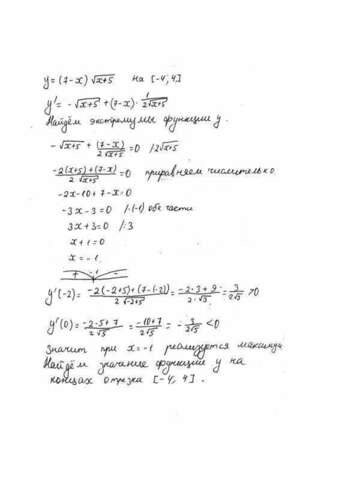 y=(7-x)√(x+5) на [-4, 4]
y' = -√(x+5) + (7-x)·1/(2√(x+5))
Найдём экстремумы функции y.
-√(x+5) + (7-x)/(2√(x+5)) = 0 /2√(x+5)
(-2(x+5)+(7-x))/(2√(x+5)) = 0 приравняем числитель к 0
-2x-10+7-x=0
-3x-3=0 /·(-1) обе части
3x+3=0 /:3
x+1=0
x=-1
+ -1 -
y'(-2) = (-2(-2+5)+(7-(-2)))/(2√(-2+5)) = (-2·3+9)/(2·√3) = 3/(2√3) >0
y'(0) = (-2·5+7)/(2√5) = (-10+7)/(2√5) = -3/(2√5) <0
Значит при x=-1 реализуется максимум
Найдём значение функции y на
концах отрезка [-4; 4].